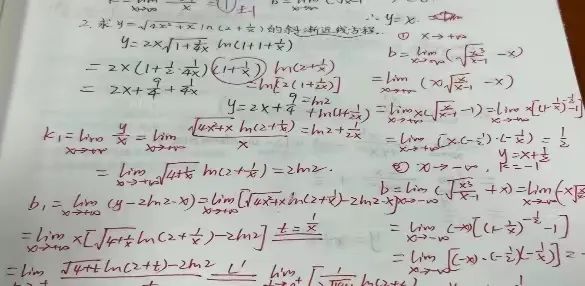 ∴ y=x.
2. 求 y=√(4x²+x) ln(2+1/x) 的斜渐近线方程.
y=2x√(1+1/4x) ln(1+1+1/x)
=2x(1+1/2·1/4x)(1+1/x) ln(2+1/x)
=ln[2(1+1/2x)]
=2x+9/4+1/4x
=ln2
y=2x+9/4 +ln(1+1/2x)
k₁=lim x→+∞ y/x=lim x→+∞ √(4x²+x) ln(2+1/x)/x=ln2+1/2x
=lim x→+∞ √(4+1/x) ln(2+1/x)=2ln2.
b₁=lim x→+∞ (y-2ln2·x)=lim x→+∞ [√(4x²+x) ln(2+1/x)-2ln2·x]
=lim x→+∞ x[√(4+1/x) ln(2+1/x)-2ln2] t=1/x
=lim √(4+t) ln(2+t)-2ln2 L' lim
① x→+∞
b=lim x→+∞ (√(x³/(x-1))-x)
=lim x→+∞ (x√(x/(x-1))-x)
=lim x→+∞ x(√(x/(x-1))-1)=lim x→+∞ x[(1-1/x)^(-1/2)-1]
=lim x→+∞ [x·(-1/2)·(-1/x)]=1/2
y=x+1/2
② x→-∞, k=-1
b=lim x→-∞ (√(x³/(x-1))+x)=lim x→-∞
=lim x→-∞ (-x)[(1-1/x)^(-1/2)-1]
=lim x→-∞ [(-x)·(-1/2)(-1/x)]=-